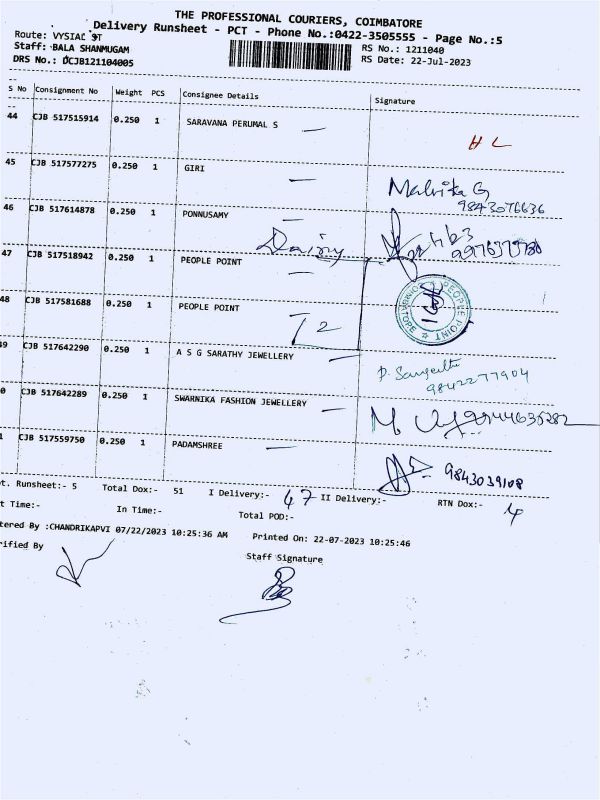 THE PROFESSIONAL COURIERS, COIMBATORE
Delivery Runsheet - PCT - Phone No.:0422-3505555 - Page No.:5
Route: VYSIAL ST
RS No.: 1211040
Staff: BALA SHANMUGAM
RS Date: 22-Jul-2023
DRS No.: DCJB121104005
S No Consignment No Weight PCS Consignee Details Signature
44 CJB 517515914 0.250 1 SARAVANA PERUMAL S
HL
45 CJB 517577275 0.250 1 GIRI
Malvika G
9843076636
46 CJB 517614878 0.250 1 PONNUSAMY
Dairy
47 CJB 517518942 0.250 1 PEOPLE POINT
PEOPLE POINT
48 CJB 517581688 0.250 1 PEOPLE POINT
T2
49 CJB 517642290 0.250 1 A S G SARATHY JEWELLERY
P. Sangeetha
9842277904
0 CJB 517642289 0.250 1 SWARNIKA FASHION JEWELLERY
9944635282
1 CJB 517559750 0.250 1 PADAMSHREE
9843039108
t. Runsheet:- 5 Total Dox:- 51 I Delivery:- 47 II Delivery:- RTN Dox:- 4
t Time:- In Time:- Total POD:-
tered By :CHANDRIKAPVI 07/22/2023 10:25:36 AM Printed On: 22-07-2023 10:25:46
rified By
Staff Signature